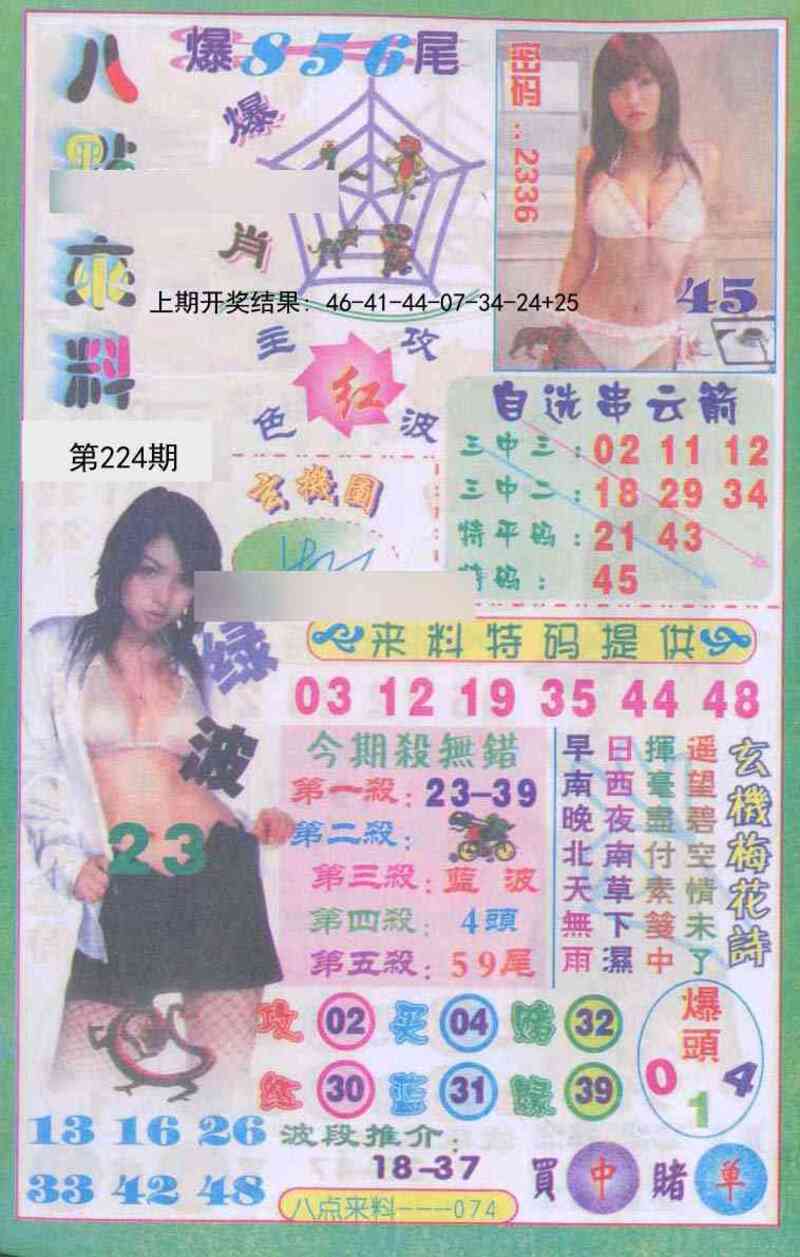 八點來料
爆856尾
爆肖
密码：2336
45
上期开奖结果：46-41-44-07-34-24+25
主攻
红
色波
第224期
玄機圖
自选串云箭
三中三：02 11 12
三中二：18 29 34
特平码：21 43
特码：45
绿波
23
来料特码提供
03 12 19 35 44 48
今期殺無錯
第一殺：23-39
第二殺：
第三殺：藍波
第四殺：4頭
第五殺：59尾
玄機梅花詩
遥望碧空情未了
揮毫盡付素箋中
日西夜南草下濕
早南晚北天無雨
攻 02 买 04 赌 32
红 30 蓝 31 緑 39
爆頭
0 1 4
13 16 26
33 42 48
波段推介：
18-37
買中賭单
八点来料---074